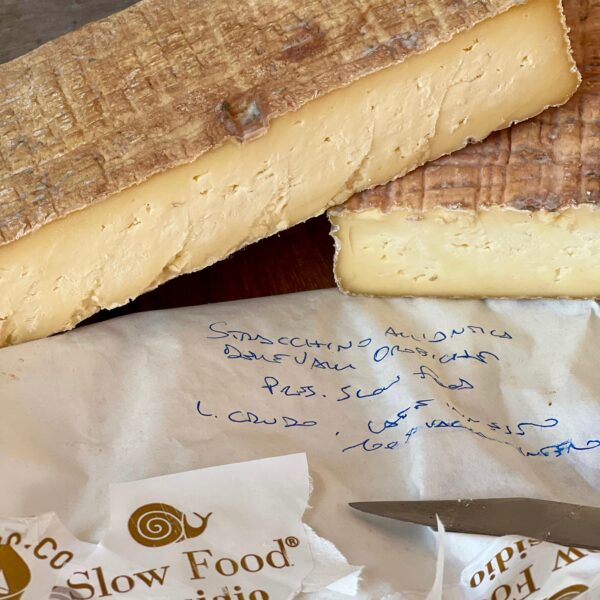 STRACCHINO ALL'ANTICA
DELLE VALLI OROBICHE
PRES. SLOW FOOD
L. CRUDO,
S.CO
Slow Food®
sidio
sidio